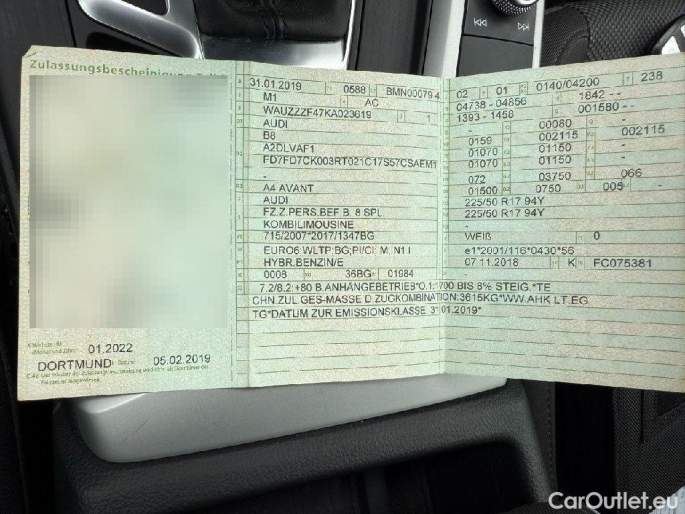 Zulassungsbescheinigung
31.01.2019 0588 BMN00079 4
M1 AC
WAUZZZF47KA023619 1
AUDI
B8
A2DLVAF1
FD7FD7CK003RT021C17S57CSAEM1
-
A4 AVANT
AUDI
FZ.Z.PERS.BEF.B. 8 SPL.
KOMBILIMOUSINE
715/2007*2017/1347BG
EURO6 WLTP;BG;PI/CI; M, N1 I
HYBR.BENZIN/E
0008 36BG 01984
02 01 0140/04200 238
04738 - 04856 1842 --
1393 - 1458 001580 --
- 00080 -
0159 002115 002115
01070 01150 -
01070 01150 -
072 03750 066
01500 0750 005 -
225/50 R17 94Y
225/50 R17 94Y
-
WEIß 0
e1*2001/116*0430*56
07.11.2018 K FC075381
7.2/8.2:+80 B.ANHÄNGEBETRIEB*O.1:1700 BIS 8% STEIG.*TE
CHN.ZUL.GES-MASSE D.ZUGKOMBINATION:3615KG*WW.AHK LT.EG
TG*DATUM ZUR EMISSIONSKLASSE 31.01.2019*
01.2022
DORTMUND 05.02.2019
CarOutlet.eu